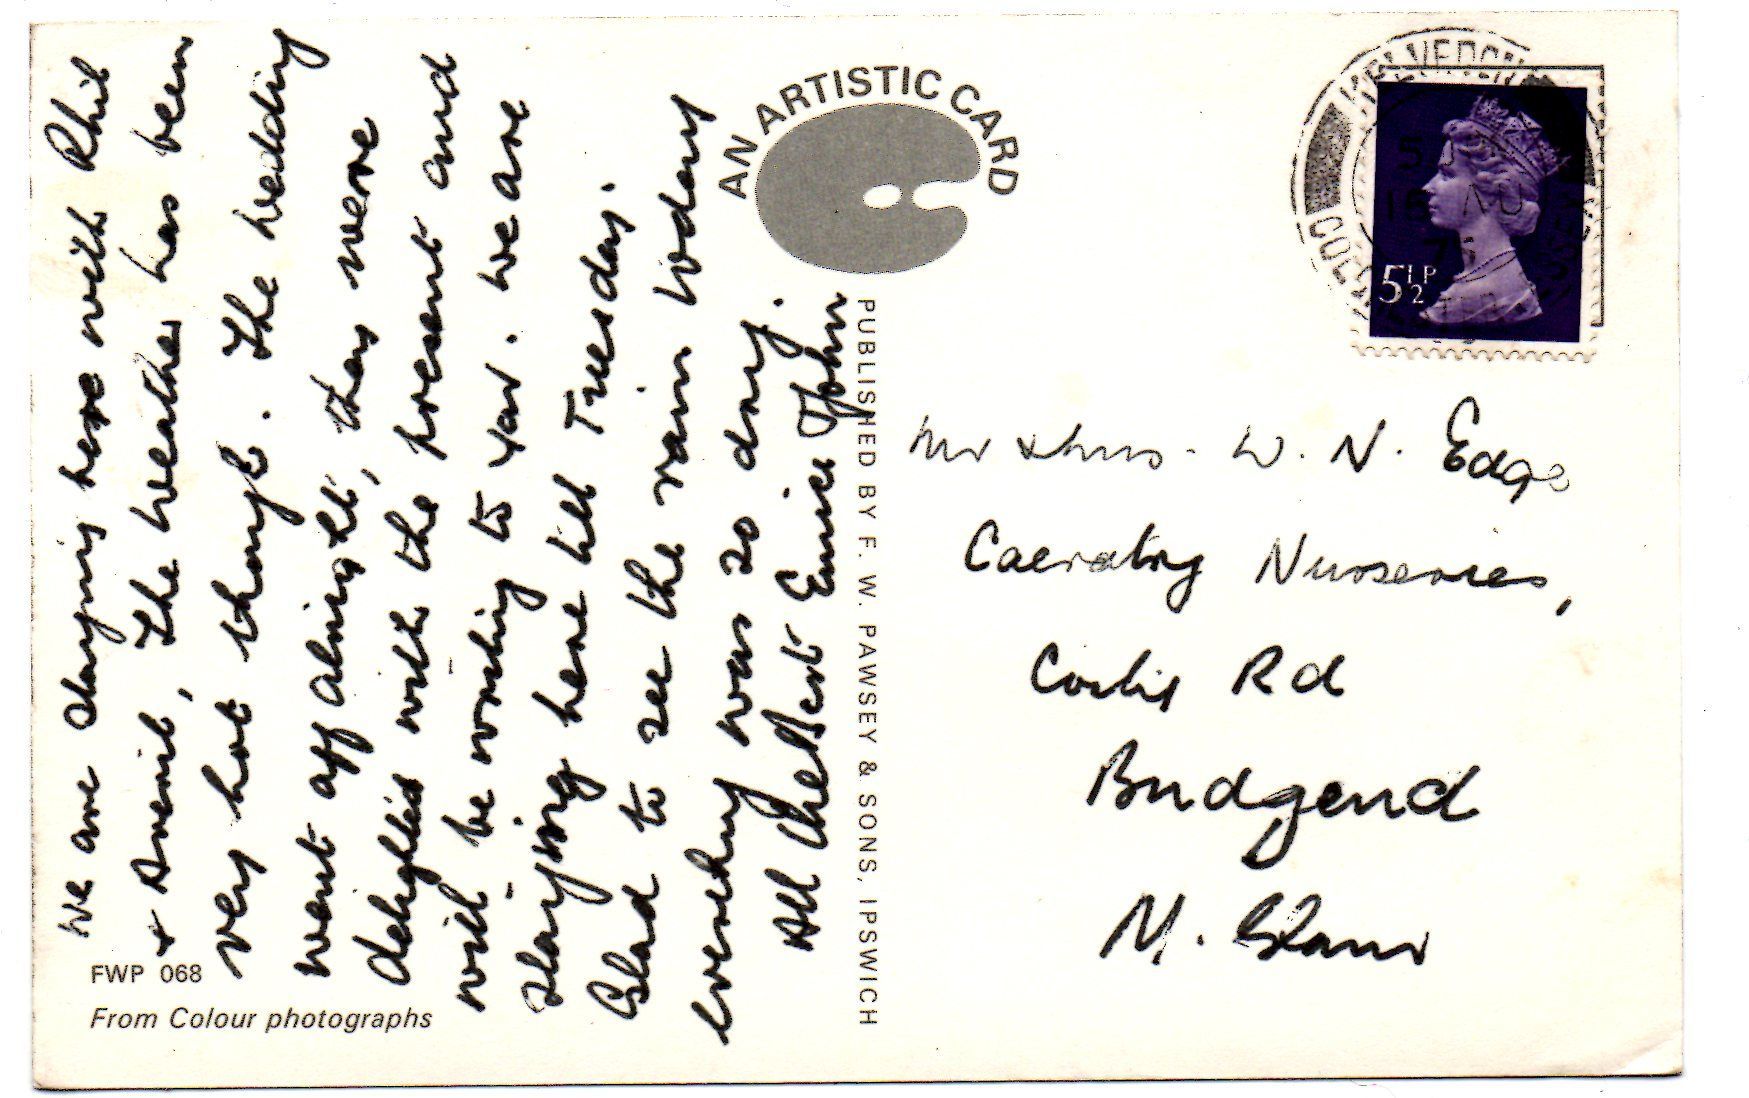 We are staying here with Phil
+ Avenil, The weather has been
very hot though. The wedding
went off alright, they were
delighted with the present and
will be writing to you. we are
staying here till Tuesday.
Glad to see the rain today
everything was so dry.
All the Best Eunice & John
FWP 068
From Colour photographs
AN ARTISTIC CARD
PUBLISHED BY F. W. PAWSEY & SONS, IPSWICH
5½P
Mr & Mrs. W. N. Edge
Nurseries,
Rd
Bridgend
M. Glam